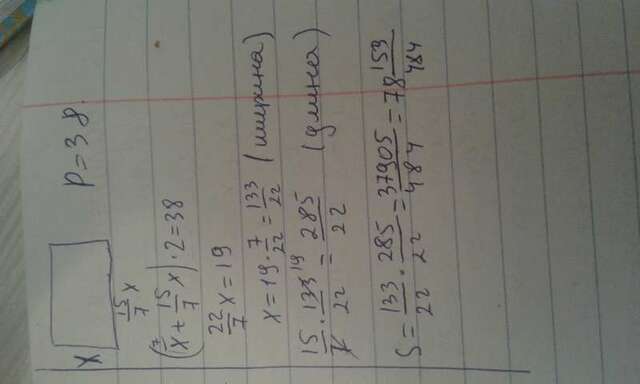 x P=38.
15/7 x
(x⁷ + 15/7 x) · 2 = 38
22/7 x = 19
x = 19 · 7/22 = 133/22 (ширина)
15/7 · 133¹⁹/22 = 285/22 (длина)
S = 133/22 · 285/22 = 37905/484 = 78 153/484